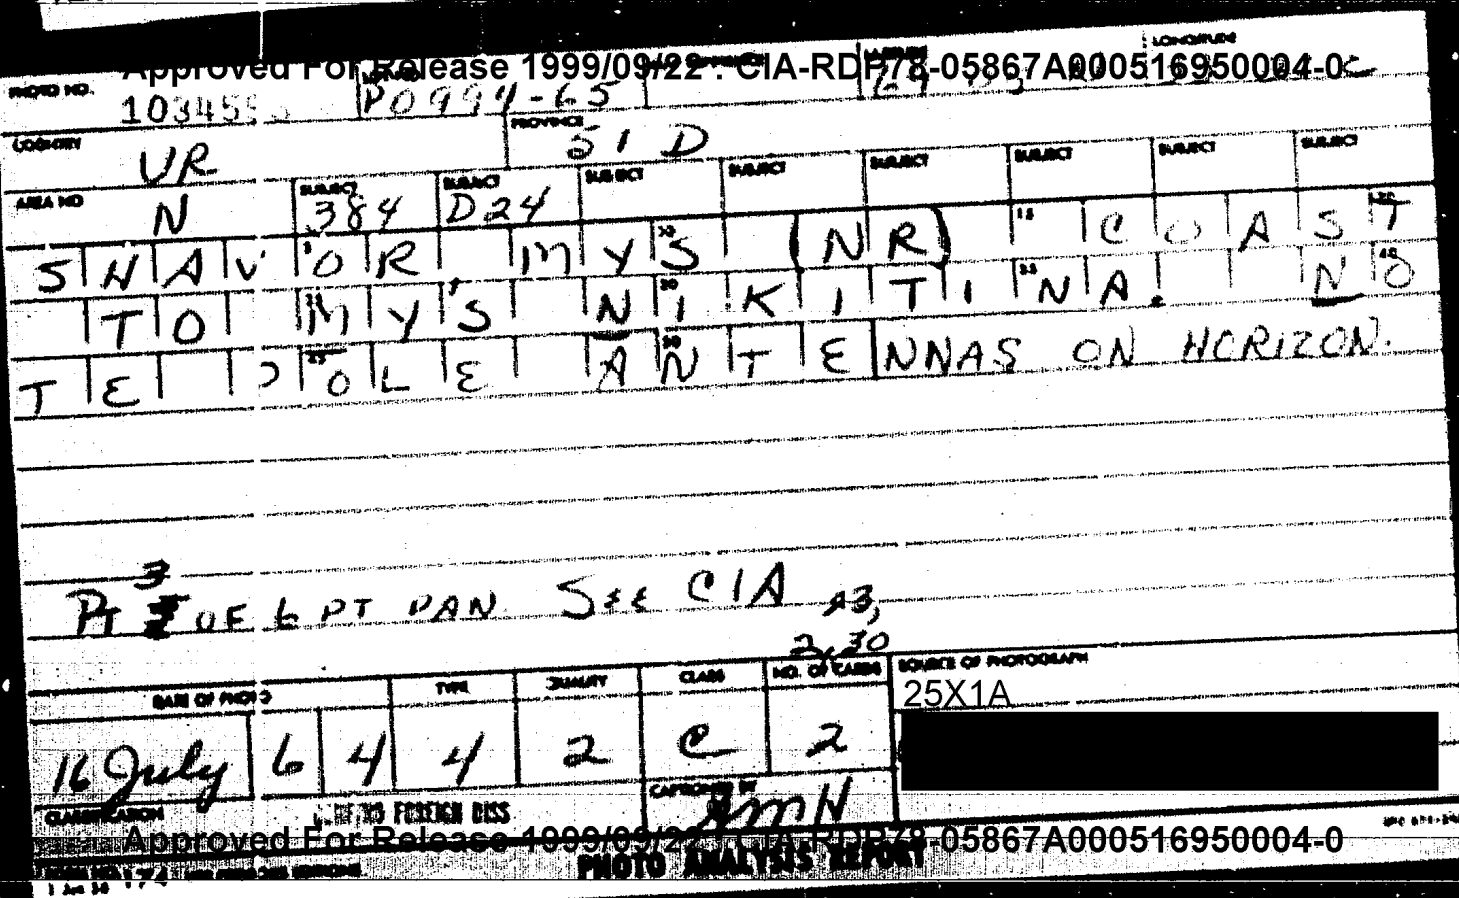 Approved For Release 1999/09/22 : CIA-RDP78-05867A000516950004-0
PHOTO NO. LATITUDE LONGITUDE
P0994-65
COUNTRY UR PROVINCE 51 D
AREA NO N SUBJECT 384 SUBJECT D24 SUBJECT SUBJECT SUBJECT SUBJECT SUBJECT SUBJECT
SHAVOR, MYS (NR) COAST
TO MY'S NIKITINA. NO
TE POLE ANTENNAS ON HORIZON.
PT 3 OF 6 PT PAN. SEE CIA
2,30
DATE OF PHOTO TYPE QUALITY CLASS NO. OF CARDS SOURCE OF PHOTOGRAPH
25X1A
16 July 64 4 2 C 2
CLASSIFICATION NO FOREIGN DISS CAPTIONED BY
Approved For Release 1999/09/22 : CIA-RDP78-05867A000516950004-0
PHOTO ANALYSIS REPORT